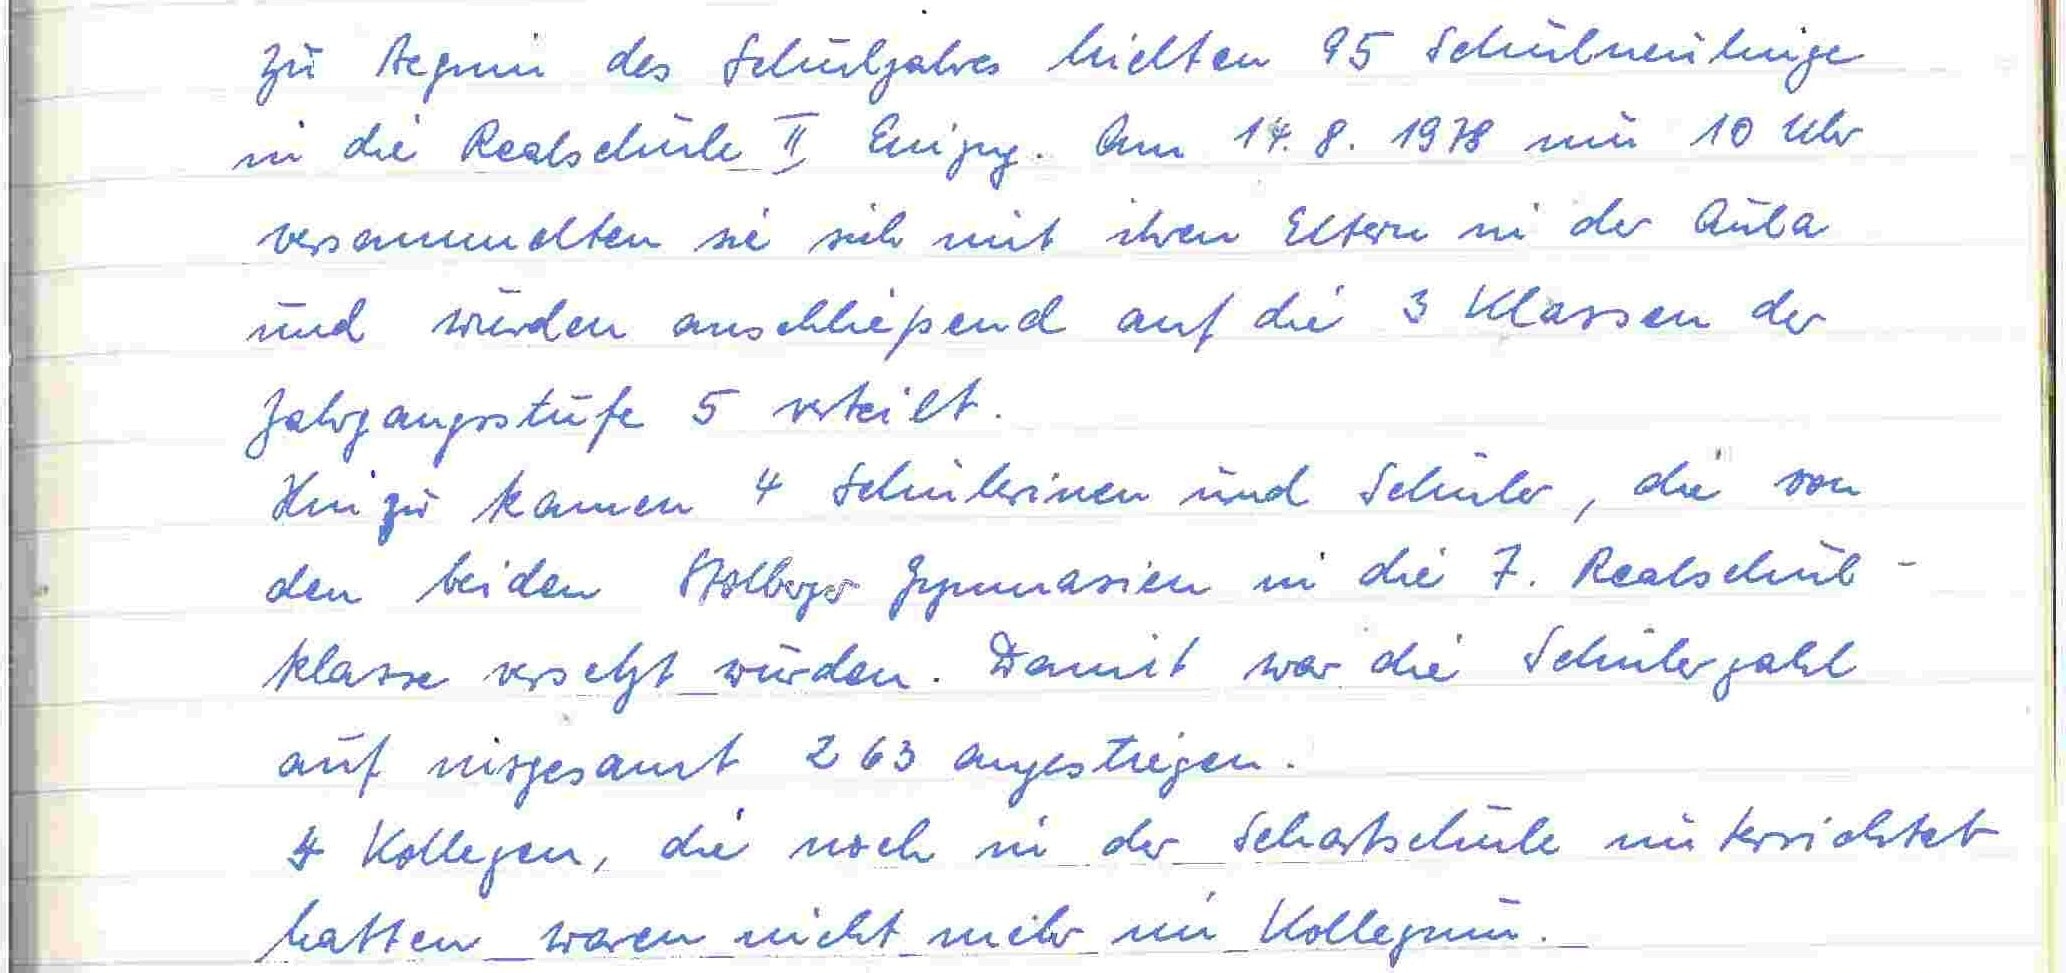 Zu Beginn des Schuljahres hielten 95 Schulneulinge
in die Realschule II Einzug. Am 14. 8. 1978 um 10 Uhr
versammelten sie sich mit ihren Eltern in der Aula
und wurden anschließend auf die 3 Klassen der
Jahrgangsstufe 5 verteilt.
Hinzu kamen 4 Schülerinen und Schüler, die von
den beiden Stolberger Gymnasien in die 7. Realschul-
klasse versetzt wurden. Damit war die Schülerzahl
auf insgesamt 263 angestiegen.
4 Kollegen, die noch in der Schartschule unterrichtet
hatten waren nicht mehr im Kollegium.